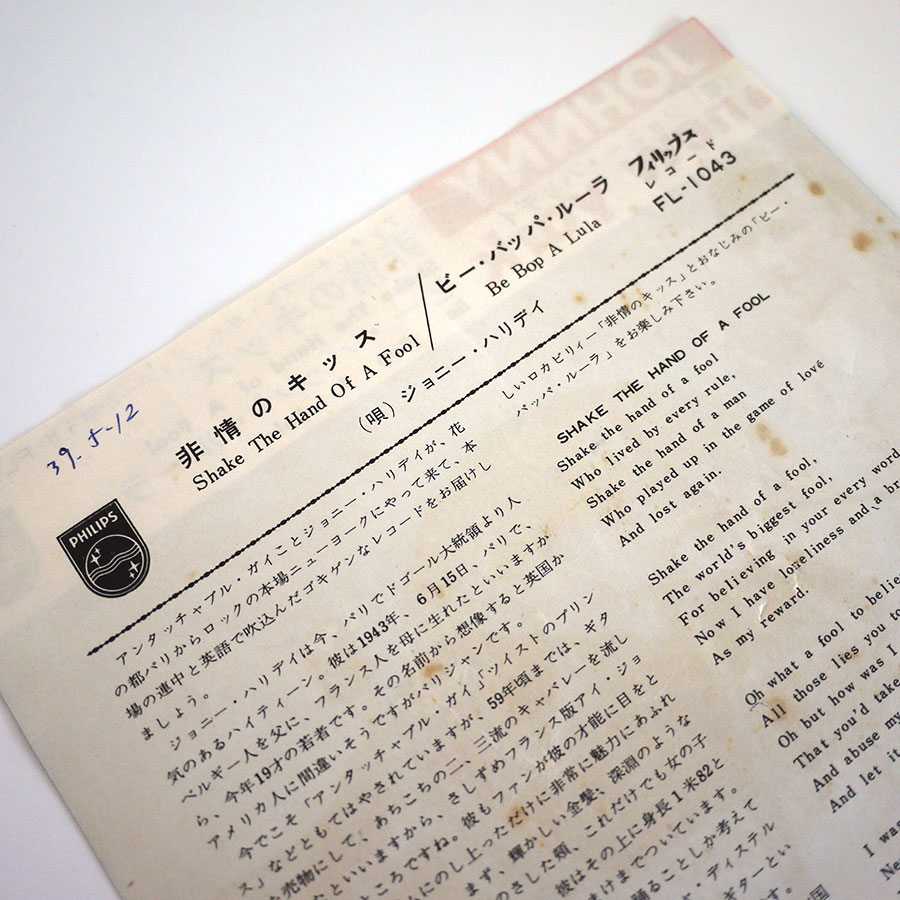 JOHNNY
フィリップス
レコード
FL-1043
非情のキッス
Shake The Hand Of A Fool
ビー・バッパ・ルーラ
Be Bop A Lula
(唄) ジョニー・ハリデイ
39.5-12
PHILIPS
アンタッチャブル・ガイことジョニー・ハリデイが、花
の都パリからロックの本場ニューヨークにやって来て、本
場の連中と英語で吹込んだゴキゲンなレコードをお届けし
ましょう。
ジョニー・ハリデイは今、パリでドゴール大統領より人
気のあるハイティーン。彼は1943年、6月15日、パリで、
ベルギー人を父に、フランス人を母に生れたといいますか
ら、今年19才の若者です。その名前から想像すると英国か
アメリカ人に間違いそうですがパリジャンです。
今でこそ「アンタッチャブル・ガイ」「ツイストのプリン
ス」などともてはやされていますが、59年頃までは、ギタ
を売物にして、あちこちの二、三流のキャバレーを流し
たといいますから、さしずめフランス版アイ・ジョ
ところですね。彼もファンが彼の才能に目をと
にのし上っただけに非常に魅力にあふれ
まず、輝かしい金髪、深淵のような
のさした頬、これだけでも女の子
彼はその上に身長1米82と
まけまでついています。
踊ることしか考えて
ャ・ディステル
ギターとい
しいロカビリィー「非情のキッス」とおなじみの「ビー・
バッパ・ルーラ」をお楽しみ下さい。
SHAKE THE HAND OF A FOOL
Shake the hand of a fool
Who lived by every rule,
Shake the hand of a man
Who played up in the game of love
And lost again.
Shake the hand of a fool,
The world's biggest fool,
For believing in your every word
Now I have loneliness and a br
As my reward.
Oh what a fool to belie
All those lies you to
Oh but how was I
That you'd take
And abuse my
And let it
I wan
Ne